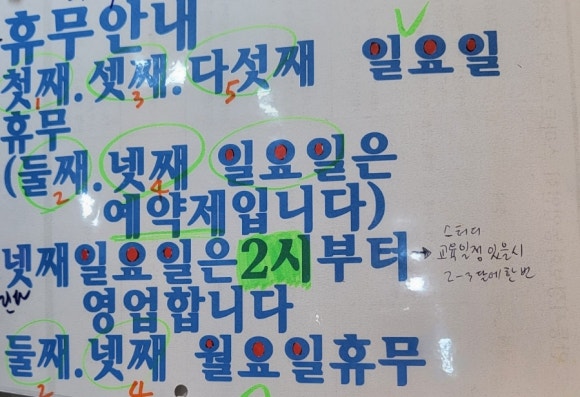 휴무안내
첫째.셋째.다섯째 일요일
1 3 5
휴무
(둘째.넷째 일요일은
2 4
예약제입니다)
넷째일요일은2시부터
→ 스터디
교육일정 있을시
2-3달에 한번
영업합니다
둘째.넷째 월요일휴무
2 4